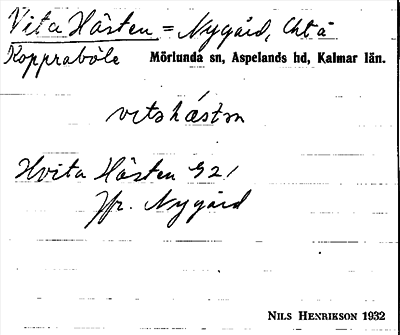 Vita Hästen = Nygård, Cht å
Kopprabole Mörlunda sn, Aspelands hd, Kalmar län.
vitshástn
Hvita Hästen 921
Jfr. Nygård
NILS HENRIKSON 1932